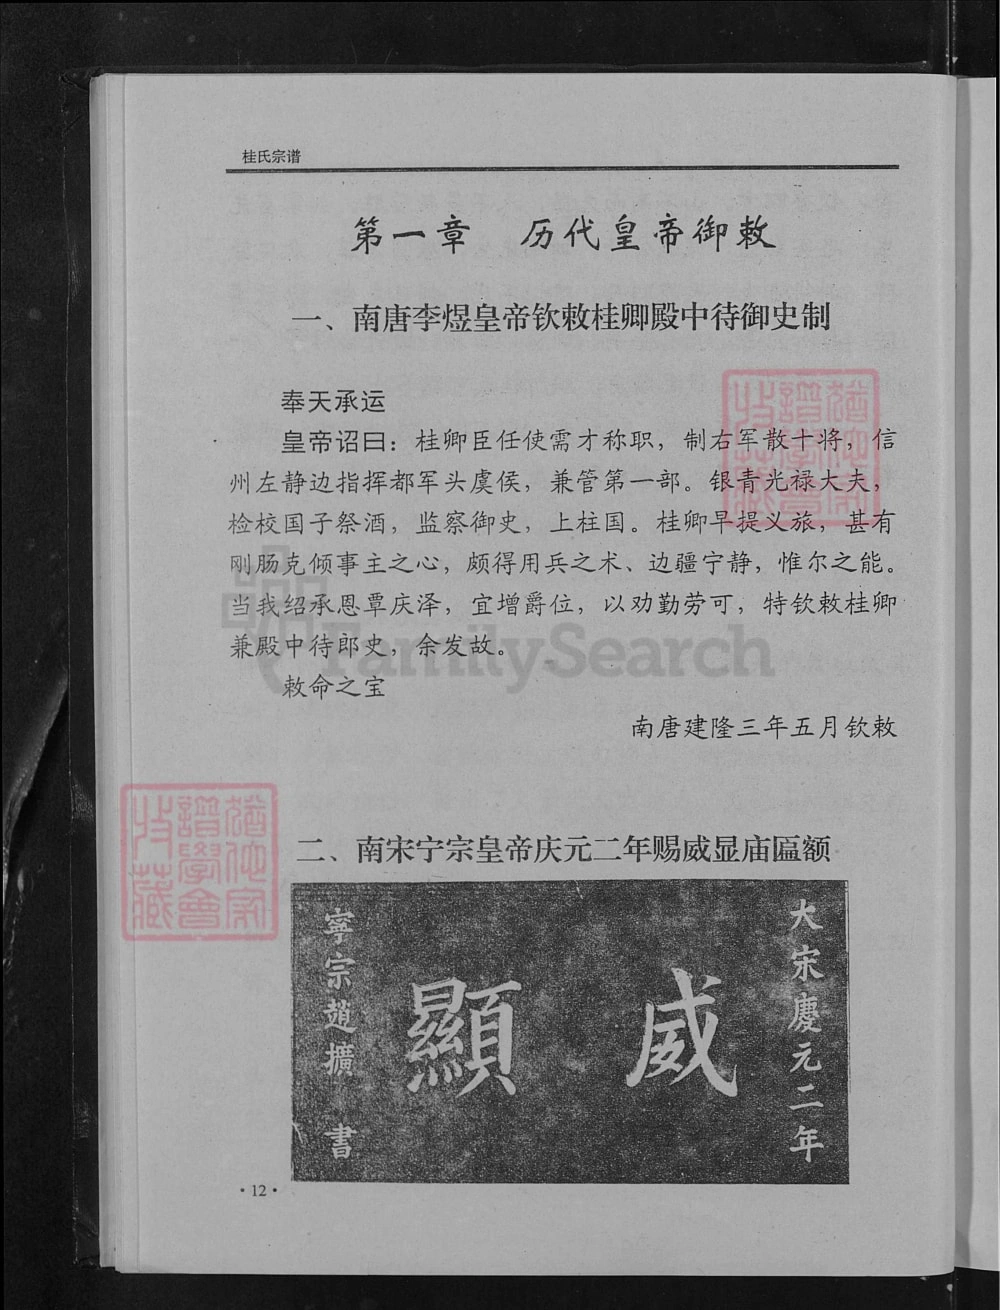 桂氏宗谱
第一章 历代皇帝御敕
一、南唐李煜皇帝钦敕桂卿殿中待御史制
奉天承运
皇帝诏曰：桂卿臣任使需才称职，制右军散十将，信
州左静边指挥都军头虞侯，兼管第一部。银青光禄大夫，
检校国子祭酒，监察御史，上柱国。桂卿早提义旅，甚有
刚肠克倾事主之心，颇得用兵之术、边疆宁静，惟尔之能。
当我绍承恩覃庆泽，宜增爵位，以劝勤劳可，特钦敕桂卿
兼殿中待郎史，余发故。
敕命之宝
南唐建隆三年五月钦敕
二、南宋宁宗皇帝庆元二年赐威显庙匾额
大宋慶元二年
威顯
寧宗趙擴書
·12·
FamilySearch
譜學會
收藏
譜學會
收藏